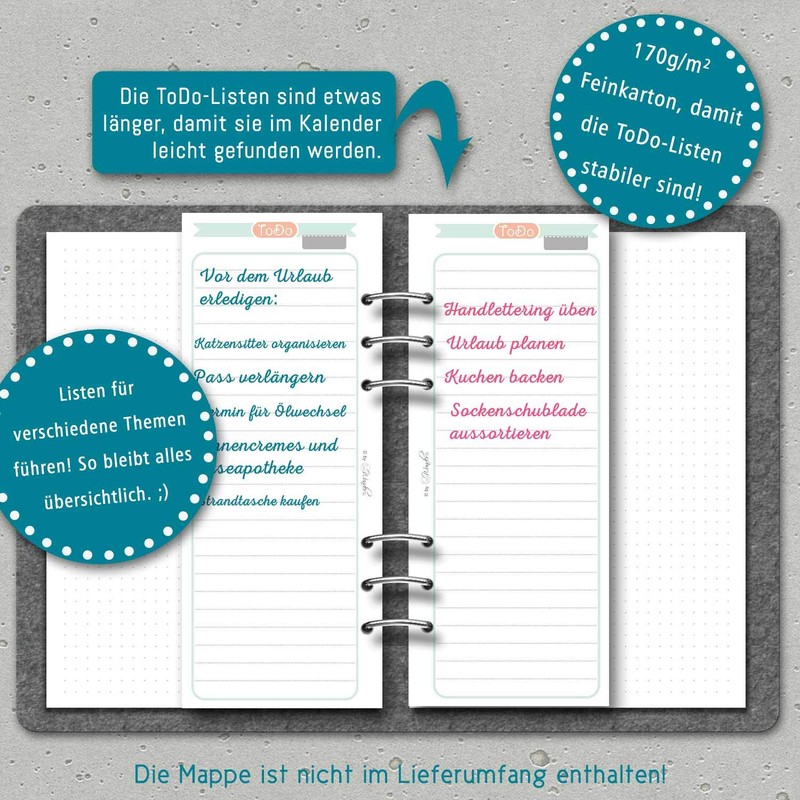 Die ToDo-Listen sind etwas
länger, damit sie im Kalender
leicht gefunden werden.
170g/m²
Feinkarton, damit
die ToDo-Listen
stabiler sind!
ToDo
Vor dem Urlaub
erledigen:
Katzensitter organisieren
Pass verlängern
ermin für Ölwechsel
nnencremes und
seapotheke
Strandtasche kaufen
© by
ToDo
Handlettering üben
Urlaub planen
Kuchen backen
Sockenschublade
aussortieren
© by
Listen für
verschiedene Themen
führen! So bleibt alles
übersichtlich. ;)
Die Mappe ist nicht im Lieferumfang enthalten!